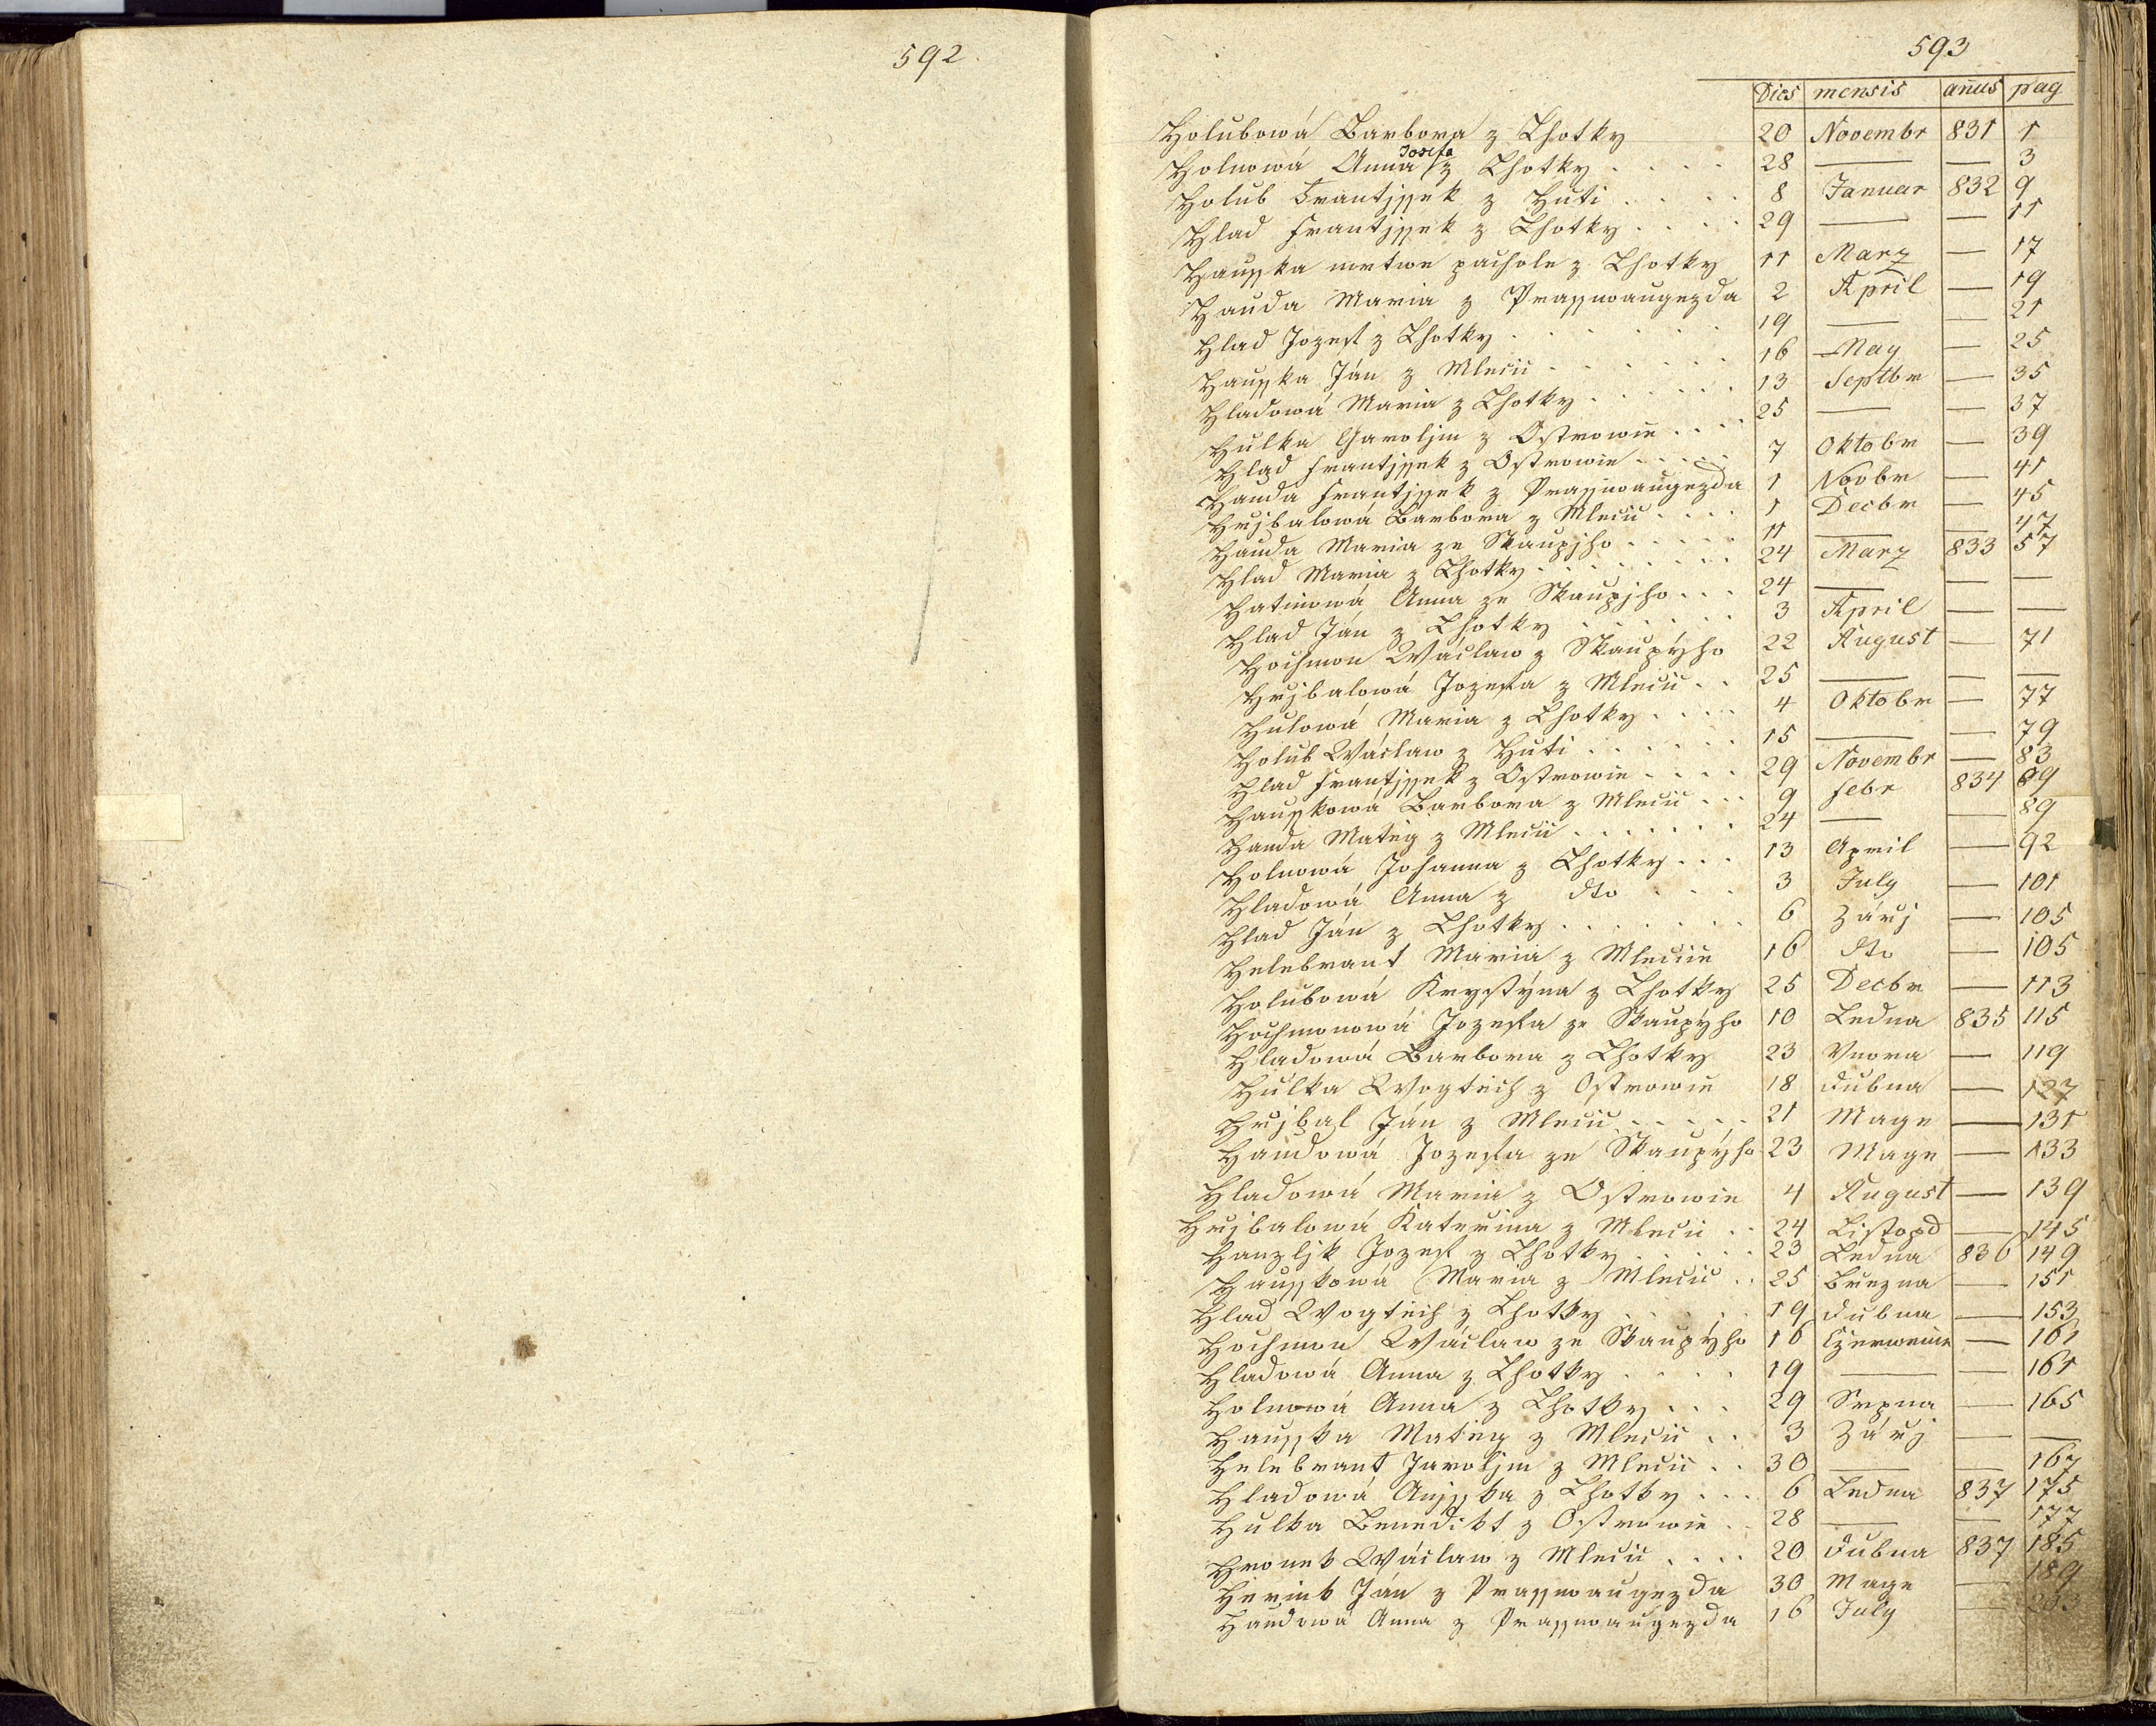 592.
593
Dies mensis añus pag
Holubowá Barbora z Lhotky 20 Novembr 831 1
Josefa
Holnowá Anna z Lhotky . . . . 28 — — 3
Holub Frantjssek z Huti . . . . 8 Januar 832 9
Hlad Frantjssek z Lhotky . . . . 29 — — 11
Hausska mrtwe pachole z Lhotky 11 Marz — 17
Hauda Maria z Prassnoaugezda 2 April — 19
Hlad Jozeff z Lhotky . . . . . . 19 — — 21
Hausska Ján z Mlecic . . . . . . 16 May — 25
Hladowá Maria z Lhotky . . . . . 13 Septbr — 35
Hulka Garoljm z Ostrowce . . . . 25 — — 37
Hlad Frantjssek z Ostrowce . . . . . 7 Oktobr — 39
Hauda Frantjssek z Prassnoaugezda 1 Novbr — 41
Hrjbalowá Barbora z Mlecic . . . . 1 Decbr — 45
Hauda Maria ze Skaupjho . . . . . 11 — — 47
Hlad Maria z Lhotky . . . . . . . . 24 Marz 833 57
Anna ze Skaupjho . . . 24 — — —
Hlad Jan z Lhotky . . . . . . 3 April — —
Hochmon Wáclaw z Skaupýho 22 August — 71
Hrjbalowá Jozeffa z Mlecic . . 25 — — —
Maria z Lhotky . . . . 4 Oktobr — 77
Holub Wáclaw z Huti . . . . . . 15 — — 79
Hlad Frantjssek z Ostrowce . . . . 29 Novembr — 83
Hausskowá Barbora z Mlecic . . . 9 Febr 834 89
Hauda Mateg z Mlecic . . . . . . . 24 — — 89
Holnowá Johanna z Lhotky . . . 13 April — 92
Hladowá Anna z dto . . . 3 July — 101
Hlad Ján z Lhotky . . . . . . . 6 Zárj — 105
Helebrant Maria z Mlecic 16 dto — 105
Holubowá Krystýna z Lhotky 25 Decbr — 113
Hochmonowá Jozeffa ze Skaupýho 10 Ledna 835 115
Hladowá Barbora z Lhotky 23 Vnora — 119
Hulka Wogtěch z Ostrowce 18 Dubna — 127
Hrjbal Ján z Mlecic . . . . . 21 Mage — 131
Haudowá Jozeffa ze Skaupýho 23 Mage — 133
Hladowá Maria z Ostrowce 4 August — 139
Hrjbalowá Kateřina z Mlecic . . 24 Listopd — 145
Hanzljk Jozeff z Lhotky . . . . . 23 Ledna 836 149
Hausskowá Maria z Mlecic . . 25 Brezna — 151
Hlad Wogtěch z Lhotky . . . . . 19 Dubna — 153
Hochmon Wáclaw ze Skaupýho 16 Czerwence — 161
Hladowá Anna z Lhotky . . . . 19 — — 161
Holnowá Anna z Lhotky . . . 29 Srpna — 165
Hausska Mateg z Mlecic . . 3 Zárj — —
Helebrant Jaroljm z Mlecic . . 30 — — 167
Hladowá Anjsska z Lhotky . . . 6 Ledna 837 175
Hulka Benedikt z Ostrowce . . 28 — — 177
Hronek Wáclaw z Mlecic . . . . 20 Dubna 837 185
Herink Ján z Prassnoaugezda 30 Mage — 189
Haudowá Anna z Prassnoaugezda 16 July — 203